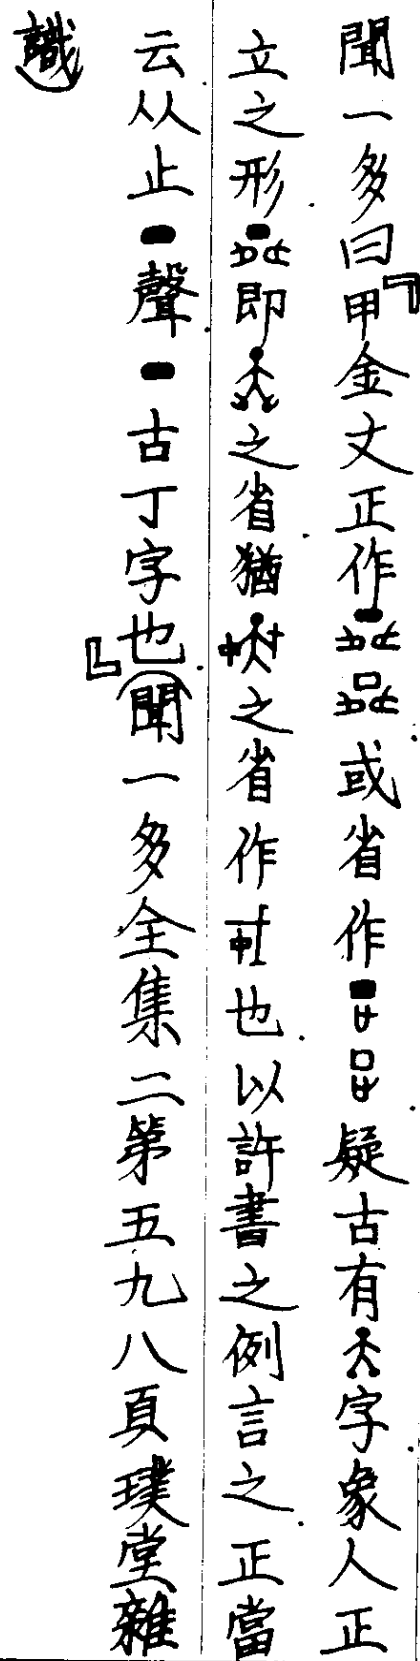 聞一多曰『甲金文正作或省作疑古有字象人正
立之形即之省猶之省作也以許書之例言之正當
云从止聲古丁字也』（聞一多全集二第五九八頁璞堂雜
識）